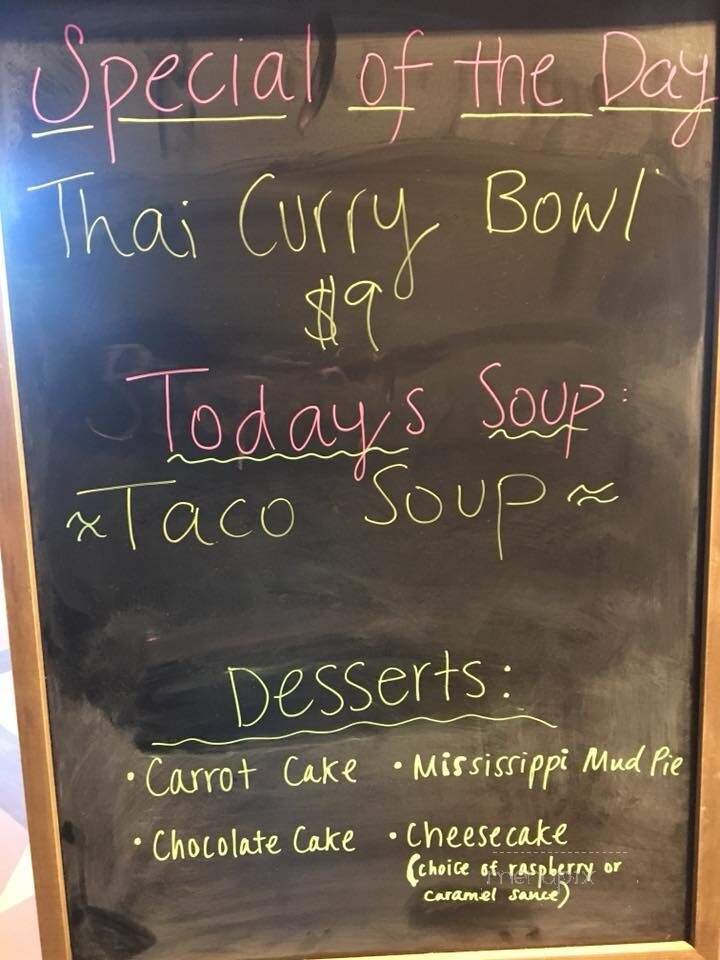 Special of the Day
Thai Curry Bowl
$9
Todays Soup:
~Taco Soup~
Desserts:
• Carrot Cake • Mississippi Mud Pie
• Chocolate Cake • Cheesecake
(choice of raspberry or
caramel sauce)
menupix